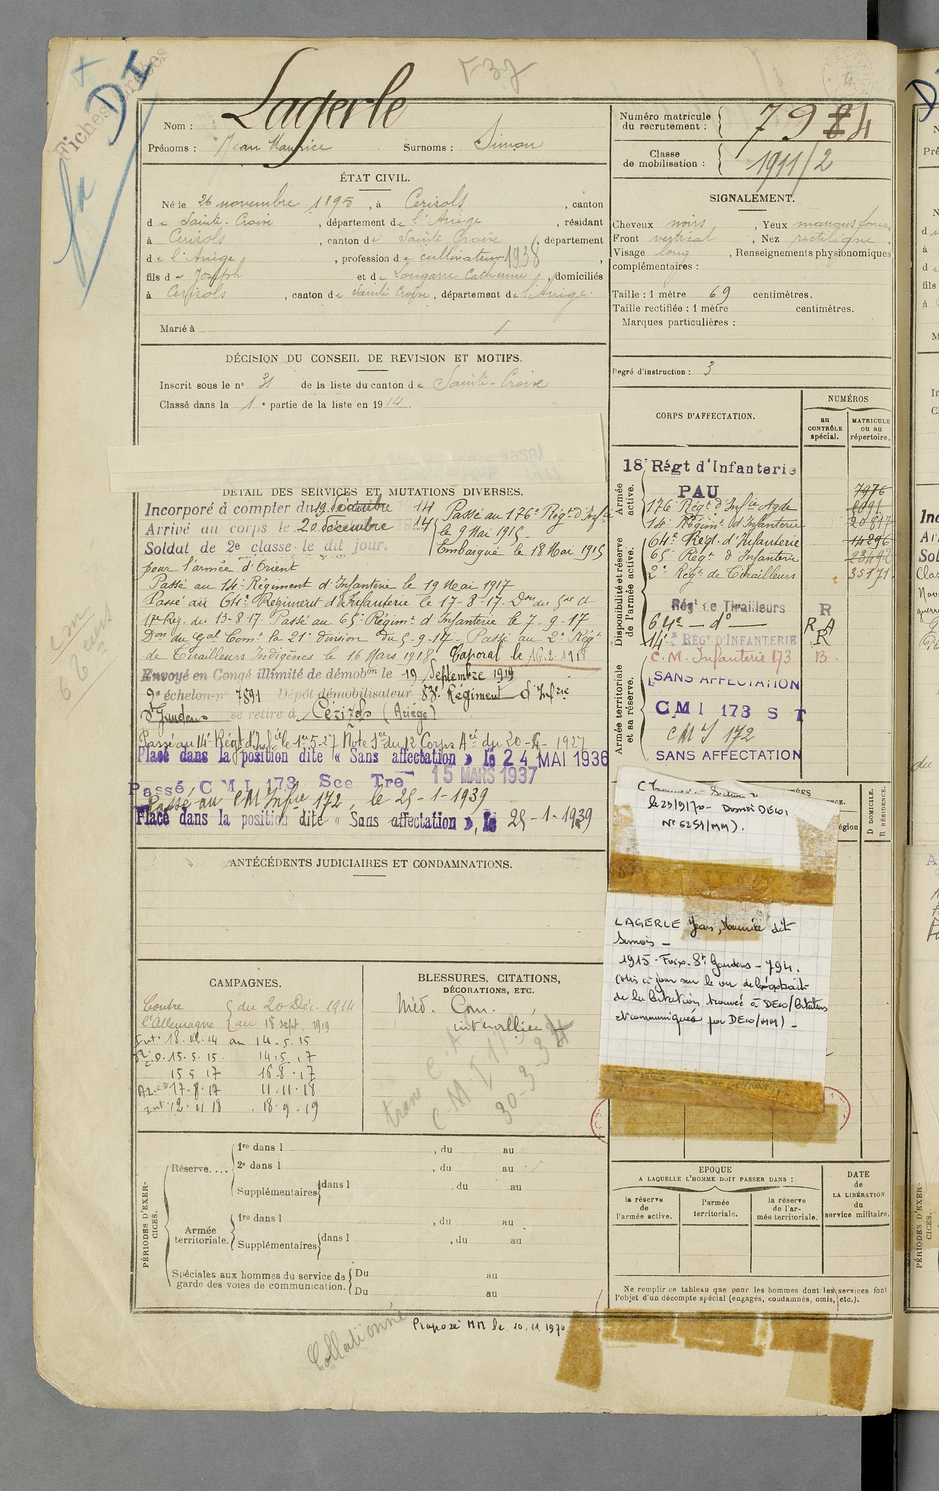 Fiches
D I
Nom : Lagerle
Prénoms : Jean Maurice Surnoms : Simon
Numéro matricule du recrutement : 794
Classe de mobilisation : 1911/2
ÉTAT CIVIL.
Né le 26 novembre 1895, à Cérizols, canton
de Sainte-Croix, département de l'Ariège, résidant
à Cérizols, canton de Sainte Croix, département
de l'Ariège, profession de cultivateur 1938
fils de Joseph et de Lougarre Catherine, domiciliés
à Cérizols, canton de Sainte Croix, département de l'Ariège.
Marié à
SIGNALEMENT.
Cheveux noirs, Yeux marrons foncé,
Front vertical, Nez rectiligne,
Visage long, Renseignements physionomiques
complémentaires :
Taille : 1 mètre 69 centimètres.
Taille rectifiée : 1 mètre centimètres.
Marques particulières :
Degré d'instruction : 3
DÉCISION DU CONSEIL DE REVISION ET MOTIFS.
Inscrit sous le n° 31 de la liste du canton de Sainte-Croix
Classé dans la 1e partie de la liste en 1914.
DÉTAIL DES SERVICES ET MUTATIONS DIVERSES.
Incorporé à compter du 19 décembre 14
Arrivé au corps le 20 décembre 14
Soldat de 2e classe le dit jour.
Passé au 176e Régt d'Infie
le 9 Mai 1915.
Embarqué le 18 Mai 1915
pour l'armée d'Orient
Passé au 14e Régiment d'Infanterie le 19 Mai 1917
Passé au 64e Régiment d'Infanterie le 17-8-17.
du 13-8-17 Passé au 65e Régimt d'Infanterie le 7-9-17
Don du Gal Comt la 21e division du 5-9-17 - Passé au 2e Régt
de Tirailleurs Indigènes le 16 Mars 1918. Caporal le 16-2-1918
Envoyé en Congé illimité de démobon le 19 Septembre 1919
9e échelon-n° 7591 Dépôt démobilisateur 83e Régiment d'Infie
St Gaudens se retire à Cérizols (Ariège)
Passé au 14e Régt d'Inf le 1er-5-27
Placé dans la position dite « Sans affectation » le 24 MAI 1936
Passé C M I 173 Sce Tre 15 MARS 1937
Passé au CM Infie 172, le 25-1-1939
Placé dans la position dite « Sans affectation », le 25-1-1939
CORPS D'AFFECTATION.
NUMÉROS
au CONTRÔLE spécial.
MATRICULE ou au répertoire.
Armée active.
18e Régt d'Infanterie
PAU 7976
176e Régt d'Infie
14e Régimt d'Infanterie
64e Régt d'Infanterie
65e Régt d'Infanterie
2e Régt de Tirailleurs 35171
Disponibilité et réserve de l'armée active.
Régt de Tirailleurs R
64e - do - R A
14e RÉGt D'INFANTERIE R
C.M. Infanterie 173 B.
Armée territoriale et sa réserve.
SANS AFFECTATION
C M I 173 S T
CMI 172
SANS AFFECTATION
D. DOMICILE.
R. RÉSIDENCE.
le 23/9/70 - Dossier DE60,
N° 6251/MM).
LAGERLE Jean, Maurice dit
Simon -
1915 - Foix-St Gaudens - 794.
(Mis à jour sur le vu de l'extrait
de la citation trouvée à DE60/Citations
et communiquée par DE60/MM) -
ANTÉCÉDENTS JUDICIAIRES ET CONDAMNATIONS.
CAMPAGNES.
Contre l'Allemagne
du 20 Déc. 1914
au 18 sept. 1919
Intr 18.12.14 au 14-5.15
C.D. 15.5.15 14.5.17
15 5 17 16 8.17
17-8-17 11.11.18
Intr 12.11 18 18-9-19
BLESSURES, CITATIONS,
DÉCORATIONS, ETC.
Méd. Com.
interalliée
30-3-34
PÉRIODES D'EXERCICES.
Réserve....
1re dans l , du au
2e dans l , du au
Supplémentaires dans l , du au
Armée territoriale.
1re dans l , du au
Supplémentaires dans l , du au
Spéciales aux hommes du service de garde des voies de communication.
Du au
Du au
EPOQUE
A LAQUELLE L'HOMME DOIT PASSER DANS :
la réserve de l'armée active.
l'armée territoriale.
la réserve de l'armée territoriale.
DATE de LA LIBÉRATION du service militaire.
Ne remplir ce tableau que pour les hommes dont les services font
l'objet d'un décompte spécial (engagés, condamnés, omis, etc.).
Collationné
Proposé MM le 10.11.1970